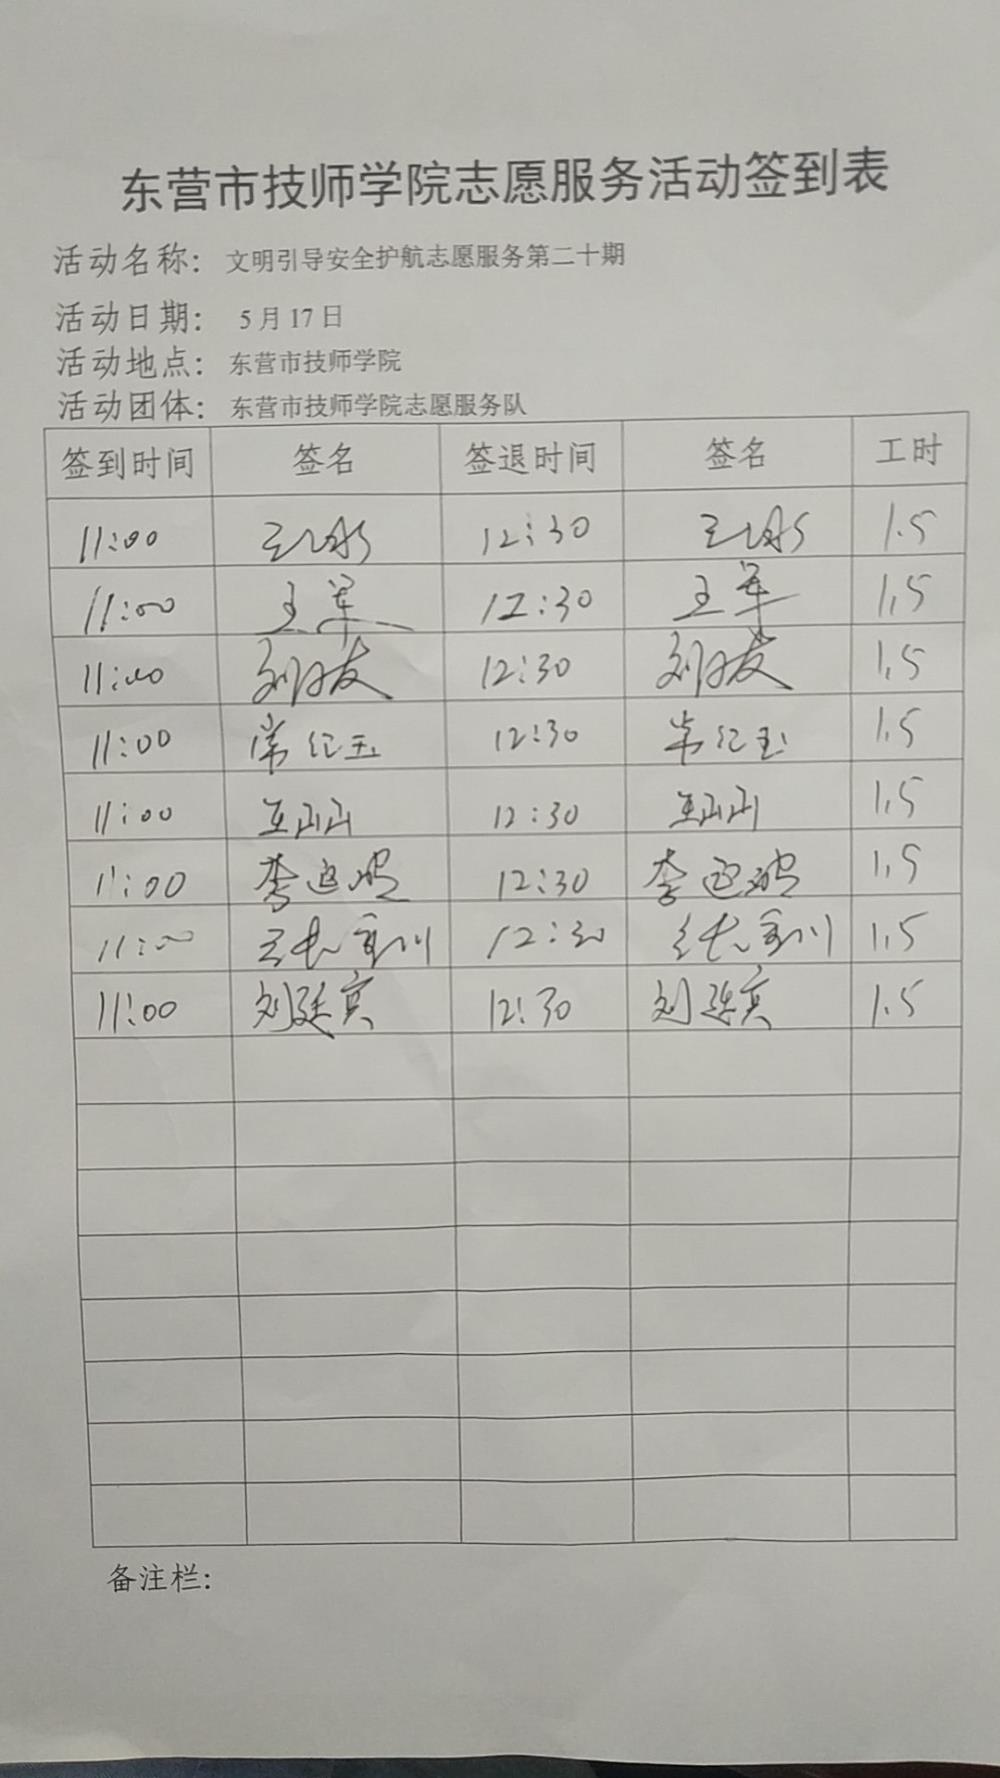 东营市技师学院志愿服务活动签到表
活动名称：文明引导安全护航志愿服务第二十期
活动日期：5月17日
活动地点：东营市技师学院
活动团体：东营市技师学院志愿服务队
签到时间 签名 签退时间 签名 工时
11:00 12:30 1.5
11:00 王军 12:30 王军 1.5
11:00 12:30 1.5
11:00 常红玉 12:30 常红玉 1.5
11:00 王山山 12:30 王山山 1.5
11:00 李 12:30 李 1.5
11:00 12:30 1.5
11:00 刘廷宾 12:30 刘廷宾 1.5
备注栏：